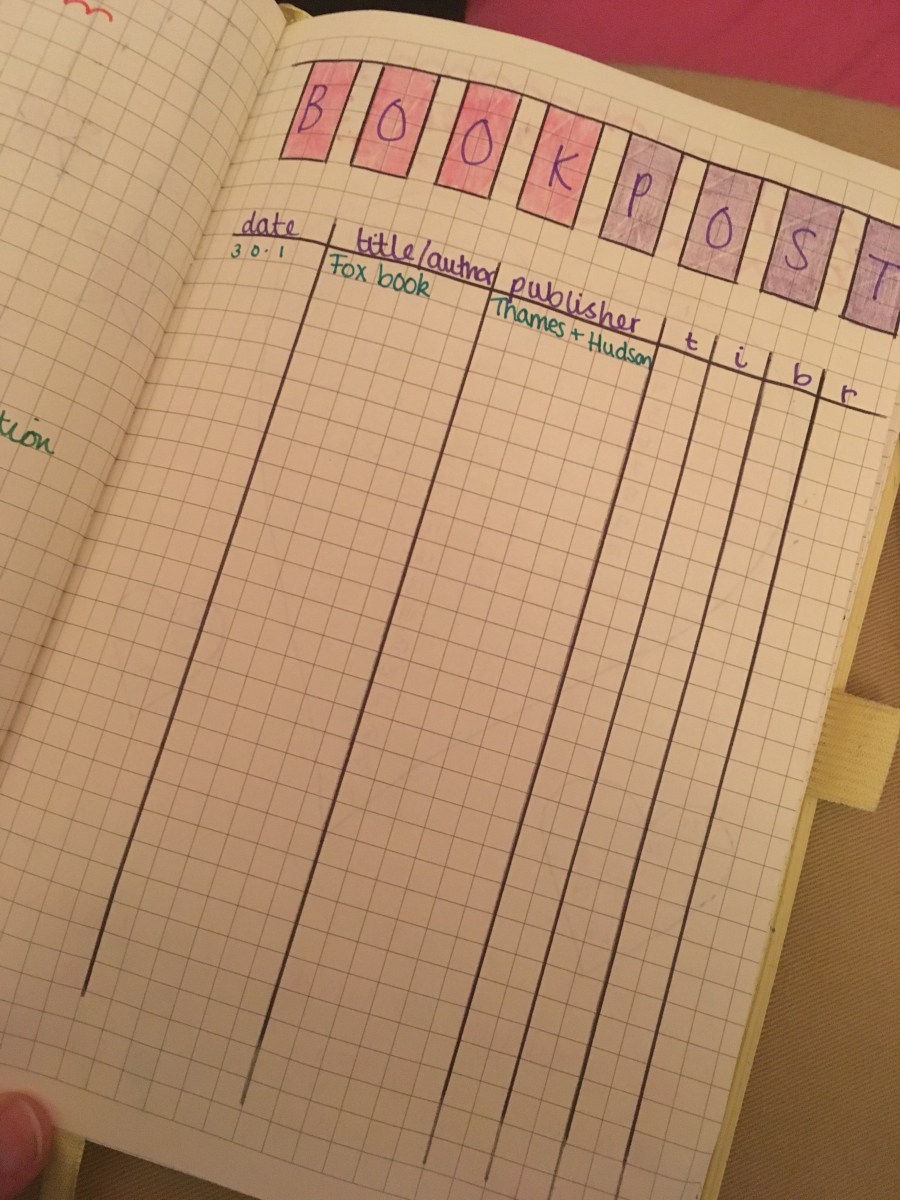 BOOK POST
date title/author publisher t i b r
30.1 Fox book Thames + Hudson
tion